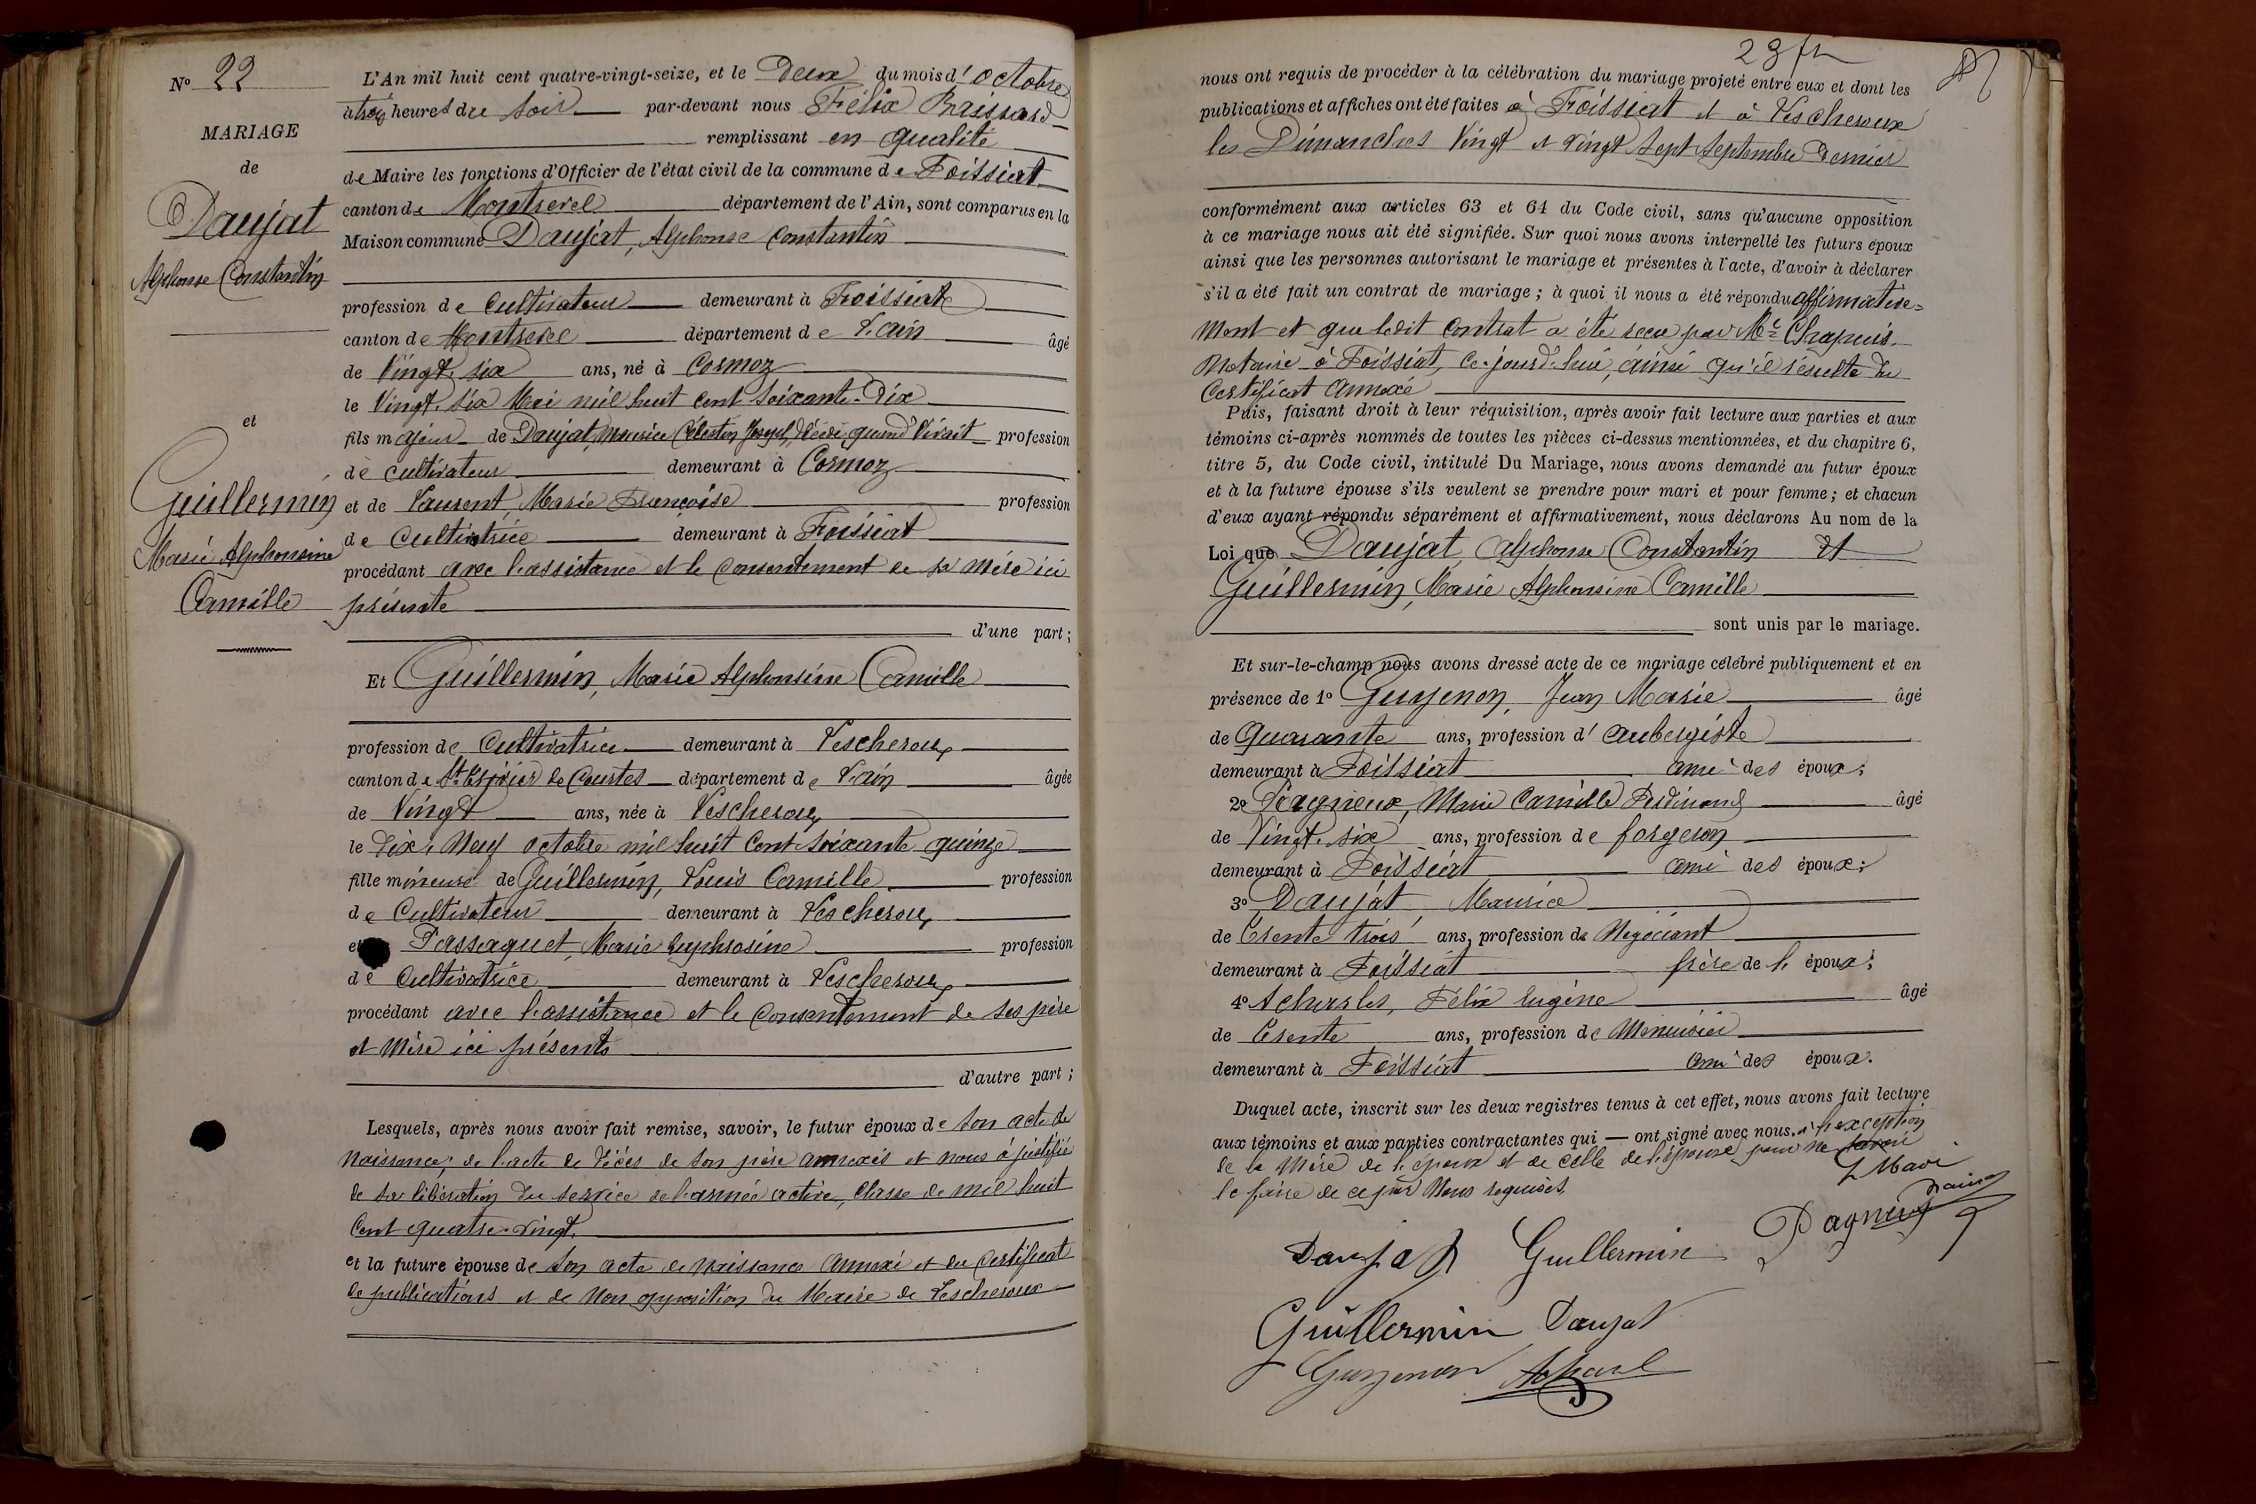 N° 22
MARIAGE
de
Daujat
Alphonse Constantin
et
Guillermin
Marie Alphonsine
Camille
L'An mil huit cent quatre-vingt-seize, et le Deux du mois d'octobre
à trois heures du soir par-devant nous Félix Brissard
remplissant en qualité
de Maire les fonctions d'Officier de l'état civil de la commune de Foissiat
canton de Montrevel département de l'Ain, sont comparus en la
Maison commune Daujat, Alphonse Constantin
profession de Cultivateur demeurant à Foissiat
canton de Montrevel département de l'ain âgé
de Vingt-six ans, né à Cormoz
le Vingt-six Mai mil huit cent soixante-Dix
fils majeur de Daujat, Maurice Célestin Joseph, décédé quand vivait profession
de cultivateur demeurant à Cormoz
et de Laurent, Marie Françoise profession
de Cultivatrice demeurant à Foissiat
procédant avec l'assistance et le consentement de sa mère ici
présente
d'une part ;
Et Guillermin, Marie Alphonsine Camille
profession de Cultivatrice demeurant à Lescheroux
canton de St Trivier de Courtes département de l'ain âgée
de Vingt ans, née à Lescheroux
le Dix-Neuf octobre mil huit cent soixante quinze
fille mineure de Guillermin, Louis Camille profession
de Cultivateur demeurant à Lescheroux
et Passaquet, Marie Euphrosine profession
de Cultivatrice demeurant à Lescheroux
procédant avec l'assistance et le consentement de ses père
et mère ici présents
d'autre part ;
Lesquels, après nous avoir fait remise, savoir, le futur époux de son acte de
Naissance, de l'acte de Décès de son père annexés et nous a justifié
de sa libération du service de l'armée active, Classe de mil huit
Cent quatre-vingt
et la future épouse de son acte de naissance annexé et du certificat
de publications et de Non opposition du Maire de Lescheroux
23
nous ont requis de procéder à la célébration du mariage projeté entre eux et dont les
publications et affiches ont été faites à Foissiat et à Lescheroux
les Dimanches Vingt et Vingt Sept Septembre Dernier
conformément aux articles 63 et 64 du Code civil, sans qu'aucune opposition
à ce mariage nous ait été signifiée. Sur quoi nous avons interpellé les futurs époux
ainsi que les personnes autorisant le mariage et présentes à l'acte, d'avoir à déclarer
s'il a été fait un contrat de mariage ; à quoi il nous a été répondu affirmative-
ment et que ledit contrat a été reçu par Me Chapuis
Notaire à Foissiat, ce jourd'hui, ainsi qu'il résulte du
Certificat annexé
Puis, faisant droit à leur réquisition, après avoir fait lecture aux parties et aux
témoins ci-après nommés de toutes les pièces ci-dessus mentionnées, et du chapitre 6,
titre 5, du Code civil, intitulé Du Mariage, nous avons demandé au futur époux
et à la future épouse s'ils veulent se prendre pour mari et pour femme ; et chacun
d'eux ayant répondu séparément et affirmativement, nous déclarons Au nom de la
Loi que Daujat, Alphonse Constantin Et
Guillermin, Marie Alphonsine Camille
sont unis par le mariage.
Et sur-le-champ nous avons dressé acte de ce mariage célébré publiquement et en
présence de 1° Guyenon, Jean Marie âgé
de Quarante ans, profession d'aubergiste
demeurant à Foissiat ami des époux ;
2° Pagneux, Marie Camille Ferdinand âgé
de Vingt-six ans, profession de forgeron
demeurant à Foissiat ami des époux ;
3° Daujat Maurice
de Trente trois ans, profession de Négociant
demeurant à Foissiat frère de l'époux ;
4° Acharles, Félix Eugène âgé
de Trente ans, profession de Menuisier
demeurant à Foissiat ami des époux.
Duquel acte, inscrit sur les deux registres tenus à cet effet, nous avons fait lecture
aux témoins et aux parties contractantes qui — ont signé avec nous, à l'exception
de la Mère de l'époux et de celle de l'épouse pour ne savoir
le faire de ce par Nous requises.
Daujat Guillermin Pagneux
Guillermin Daujat
Guyenon Acharl